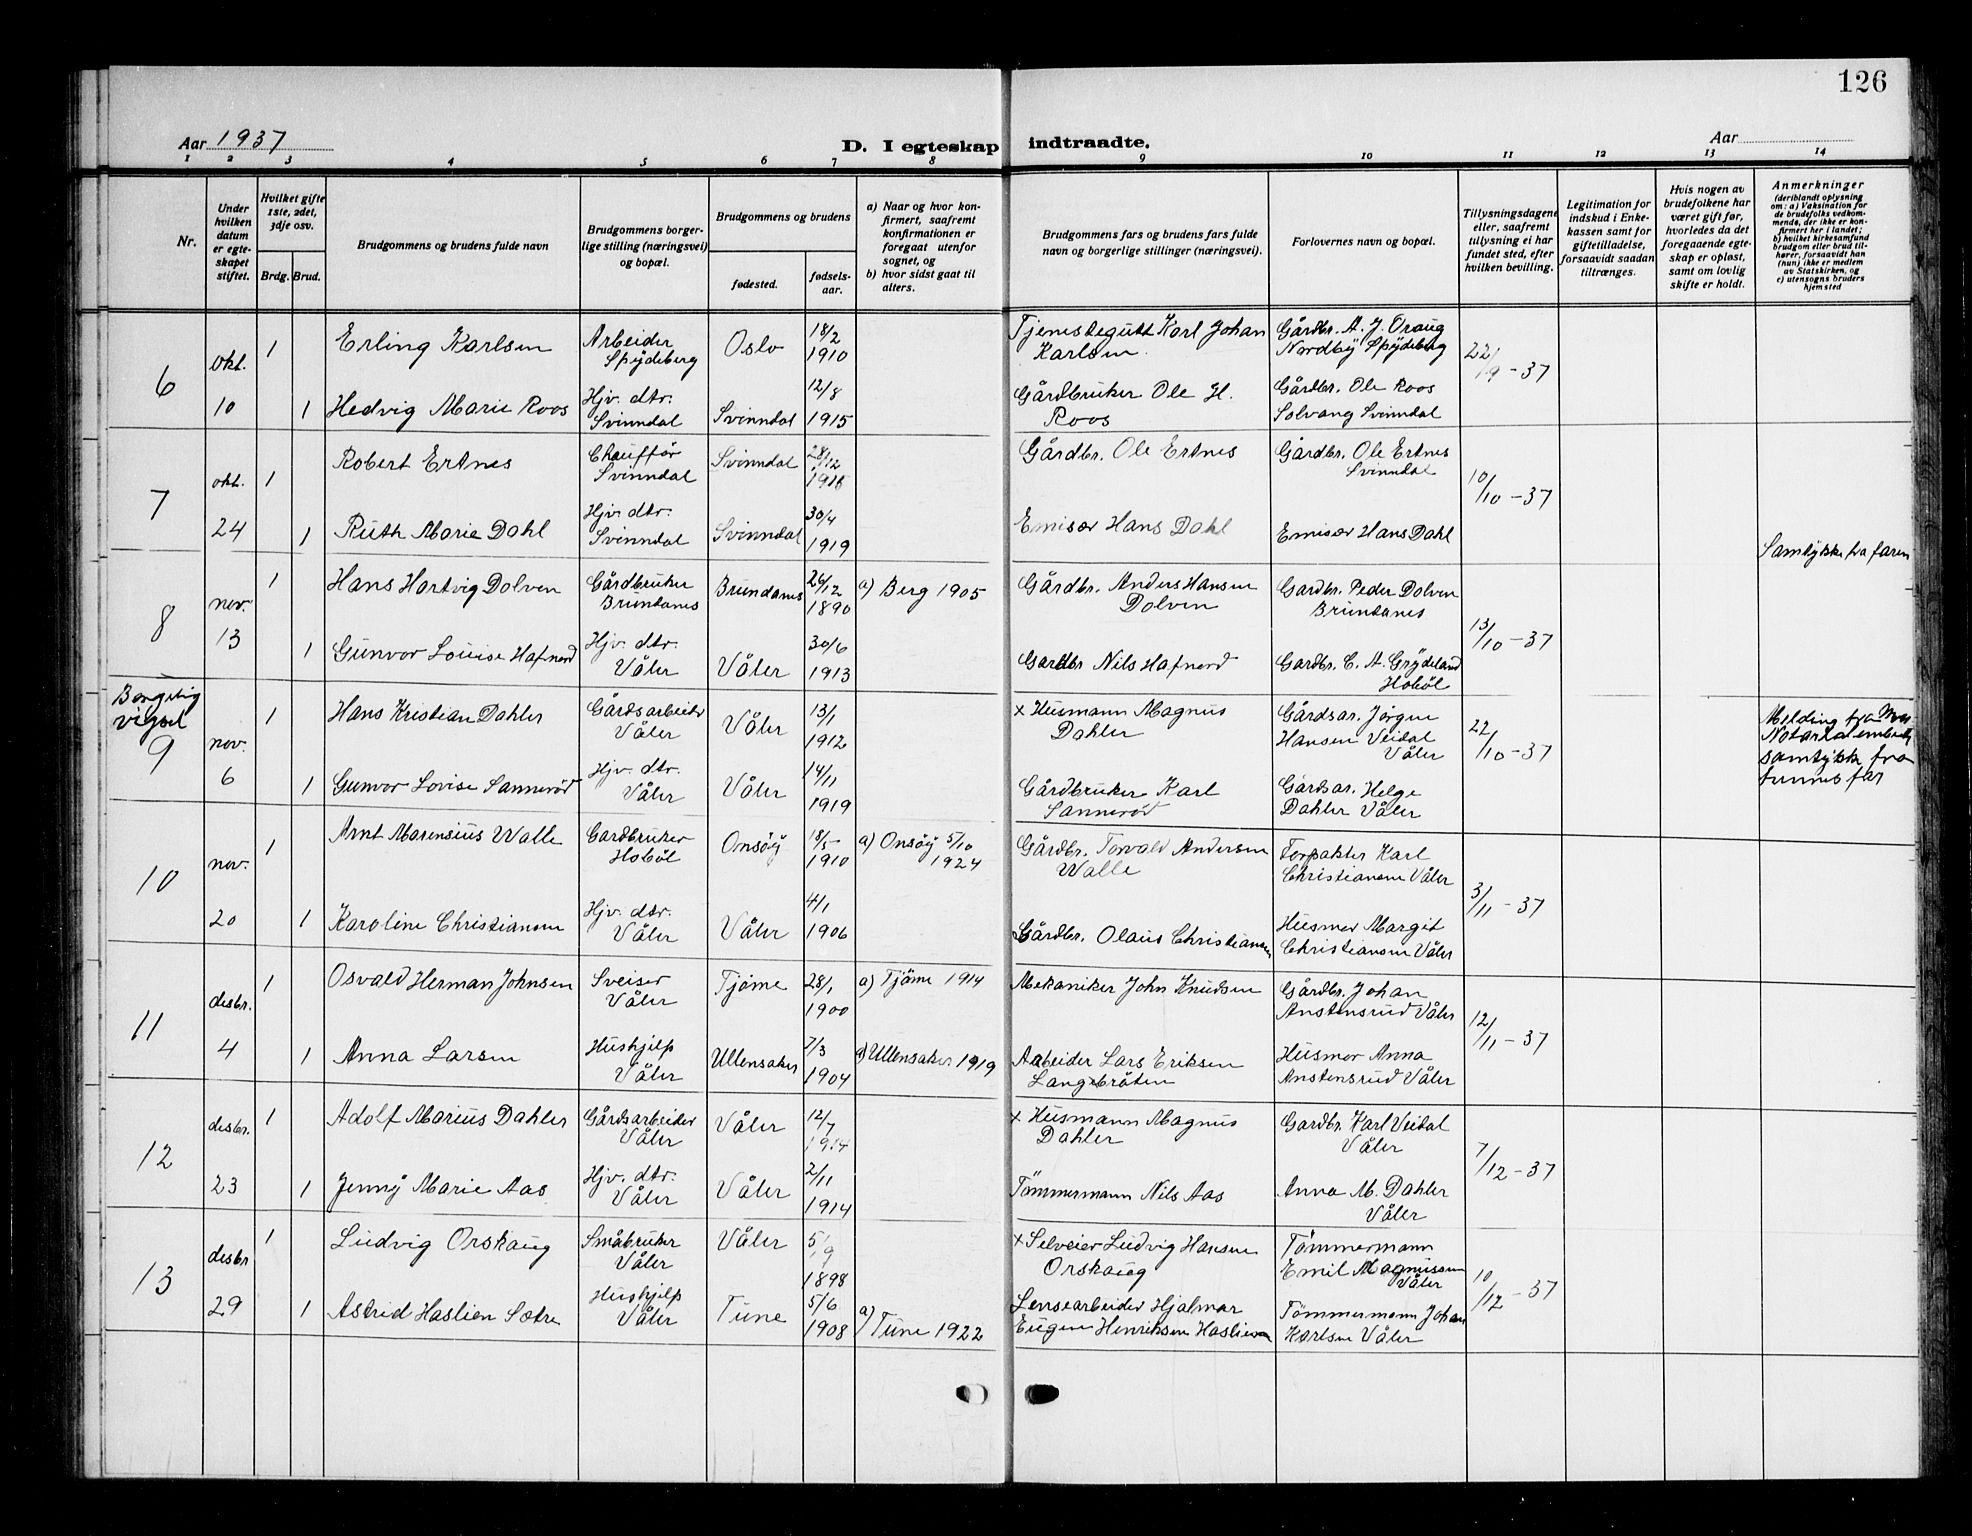 126
Aar 1937
D. I egteskap indtraadte.
Aar
1 2 3 4 5 6 7 8 9 10 11 12 13 14
Nr.
Under hvilken datum er egteskapet stiftet.
Hvilket gifte 1ste, 2det, 3dje osv.
Brdg. Brud.
Brudgommens og brudens fulde navn
Brudgommens borgerlige stilling (næringsvei) og bopæl.
Brudgommens og brudens
fødested.
fødselsaar.
a) Naar og hvor konfirmert, saafremt konfirmationen er foregaat utenfor sognet, og
b) hvor sidst gaat til alters.
Brudgommens fars og brudens fars fulde navn og borgerlige stillinger (næringsvei).
Forlovernes navn og bopæl.
Tillysningsdagene eller, saafremt tillysning ei har fundet sted, efter hvilken bevilling.
Legitimation for indskud i Enkekassen samt for giftetilladelse, forsaavidt saadan tiltrænges.
Hvis nogen av brudefolkene har været gift før, hvorledes da det foregaaende egteskap er opløst, samt om lovlig skifte er holdt.
Anmerkninger
(deriblandt oplysning om: a) Vaksination for de brudefolks vedkommende, der ikke er konfirmert her i landet; b) hvilket kirkesamfund brudgom eller brud tilhører, forsaavidt han (hun) ikke er medlem av Statskirken, og c) utensogns bruders hjemsted
6 okt. 10
1 Erling Karlsen Arbeider Spydeberg Oslo 18/2 1910 Tjenestegutt Karl Johan Karlsen Gårdbr. A. J. Oraug Nordby Spydeberg 22/9-37
1 Hedvig Marie Roos Hjv. dtr. Svinndal Svinndal 12/8 1915 Gårdbruker Ole H. Roos Gårdbr. Ole Roos Solvang Svinndal
7 okt. 24
1 Robert Ertnes Chauffør Svinndal Svinndal 28/12 1918 Gårdbr. Ole Ertnes Gårdbr. Ole Ertnes Svinndal 10/10-37
1 Ruth Marie Dahl Hjv. dtr. Svinndal Svinndal 30/4 1919 Emisær Hans Dahl Emisær Hans Dahl Samtykke fra faren
8 nov. 13
1 Hans Hartvig Dolven Gårdbruker Brundanes Brundanes 26/12 1890 a) Berg 1905 Gårdbr. Anders Hansen Dolven Gardbr. Peder Dolven Brundanes 13/10-37
1 Gunvor Louise Hafnord Hjv. dtr. Våler Våler 30/6 1913 Gardbr Nils Hafnord Gardbr. C. A. Grydeland Hobøl
Borgelig vigsel
9 nov. 6
1 Hans Kristian Dahler Gårdsarbeider Våler Våler 13/1 1912 x Husmann Magnus Dahler Gårdsar. Jørgen Hansen Veidal Våler 22/10-37 Melding fra Moss Notarialembede samtykke fra hennes far
1 Gunvor Lovise Sannerød Hjv. dtr. Våler Våler 14/11 1919 Gårdbruker Karl Sannerød Gårdsar. Helge Dahler Våler
10 nov. 20
1 Arnt Marensius Walle Gardbruker Hobøl Onsøy 18/5 1910 a) Onsøy 5/10 1924 Gårdbr. Torvald Andersen Walle Forpakter Karl Christiansen Våler 3/11-37
1 Karoline Christiansen Hjv. dtr. Våler Våler 4/1 1906 Gårdbr. Olaus Christiansen Husmor Margit Christiansen Våler
11 desbr. 4
1 Osvald Herman Johnsen Sveiser Våler Tjøme 28/1 1900 a) Tjøme 1914 Mekaniker John Knudsen Gårdbr. Johan Anstensrud Våler 12/11-37
1 Anna Larsen Hushjelp Våler Ullensaker 7/3 1904 a) Ullensaker 1919 Arbeider Lars Eriksen Langebråten Husmor Anna Anstensrud Våler
12 desbr. 23
1 Adolf Marius Dahler Gårdsarbeider Våler Våler 12/7 1914 x Husmann Magnus Dahler Gardbr. Karl Veidal Våler 7/12-37
1 Jenny Marie Aas Hjv. dtr. Våler Våler 2/11 1914 Tømmermann Nils Aas Anna M. Dahler Våler
13 desbr 29
1 Ludvig Orskaug Småbruker Våler Våler 5/9 1898 x Selveier Ludvig Hansen Orskaug Tømmermann Emil Magnussen Våler 10/12-37
1 Astrid Haslien Sætre Hushjelp Våler Tune 5/6 1908 a) Tune 1922 Lensearbeider Hjalmar Eugen Henriksen Haslien Tømmermann Johan Karlsen Våler